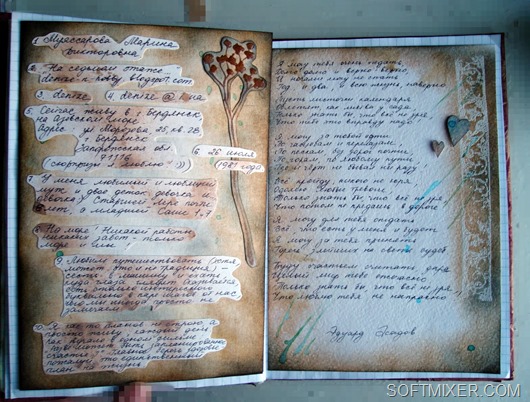 1. Мрассарова Марина
Викторовна
2. На седьмом этаже...
denzee-hobby.blogspot.com
3. denzee 4. denzee @ .ua
5. Сейчас живу в г. Бердянск
на Азовском море
Адрес: ул. Морозова
г. Бердянск
Запорожская обл.
71116
(сюрпризы я люблю :))
6. 26 июля
1981 года
7. У меня любимый и любящий
муж и двое деток девочка и
девочка) Старшей Лере почти
лет, а младшей Саше 1,7
8. На море! Никакой работы
никаких забот - только
море и мы!
9. Люблю путешествовать
может это и не традиция) -
сесть в машину и ехать
куда глаза глядят
есть столько интересного
буквально в паре шагов от нас
его мы иногда просто не
замечаем
10. Я как-то планов не строю, а
просто живу каждый день
Я могу тебя очень ждать,
Долго-долго и верно-верно,
И ночами могу не спать
Год, и два, и всю жизнь, наверно.
Пусть листочки календаря
Облетят, как листва у сада,
Только знать бы, что всё не зря,
Что тебе это вправду надо!
Я могу за тобой идти
По чащобам и перелазам,
По пескам, без дорог почти,
По горам, по любому пути,
Где и чёрт не бывал ни разу!
Всё пройду, никого не коря,
Одолею любые тревоги,
Только знать бы, что всё не зря,
Что потом не предашь в дороге.
Я могу для тебя отдать
Всё, что есть у меня и будет.
Я могу за тебя принять
Горечь злейших на свете судеб.
Буду счастьем считать, даря
Целый мир тебе ежечасно.
Только знать бы, что всё не зря,
Что люблю тебя не напрасно!
Эдуард Асадов
SOFTMIXER.COM